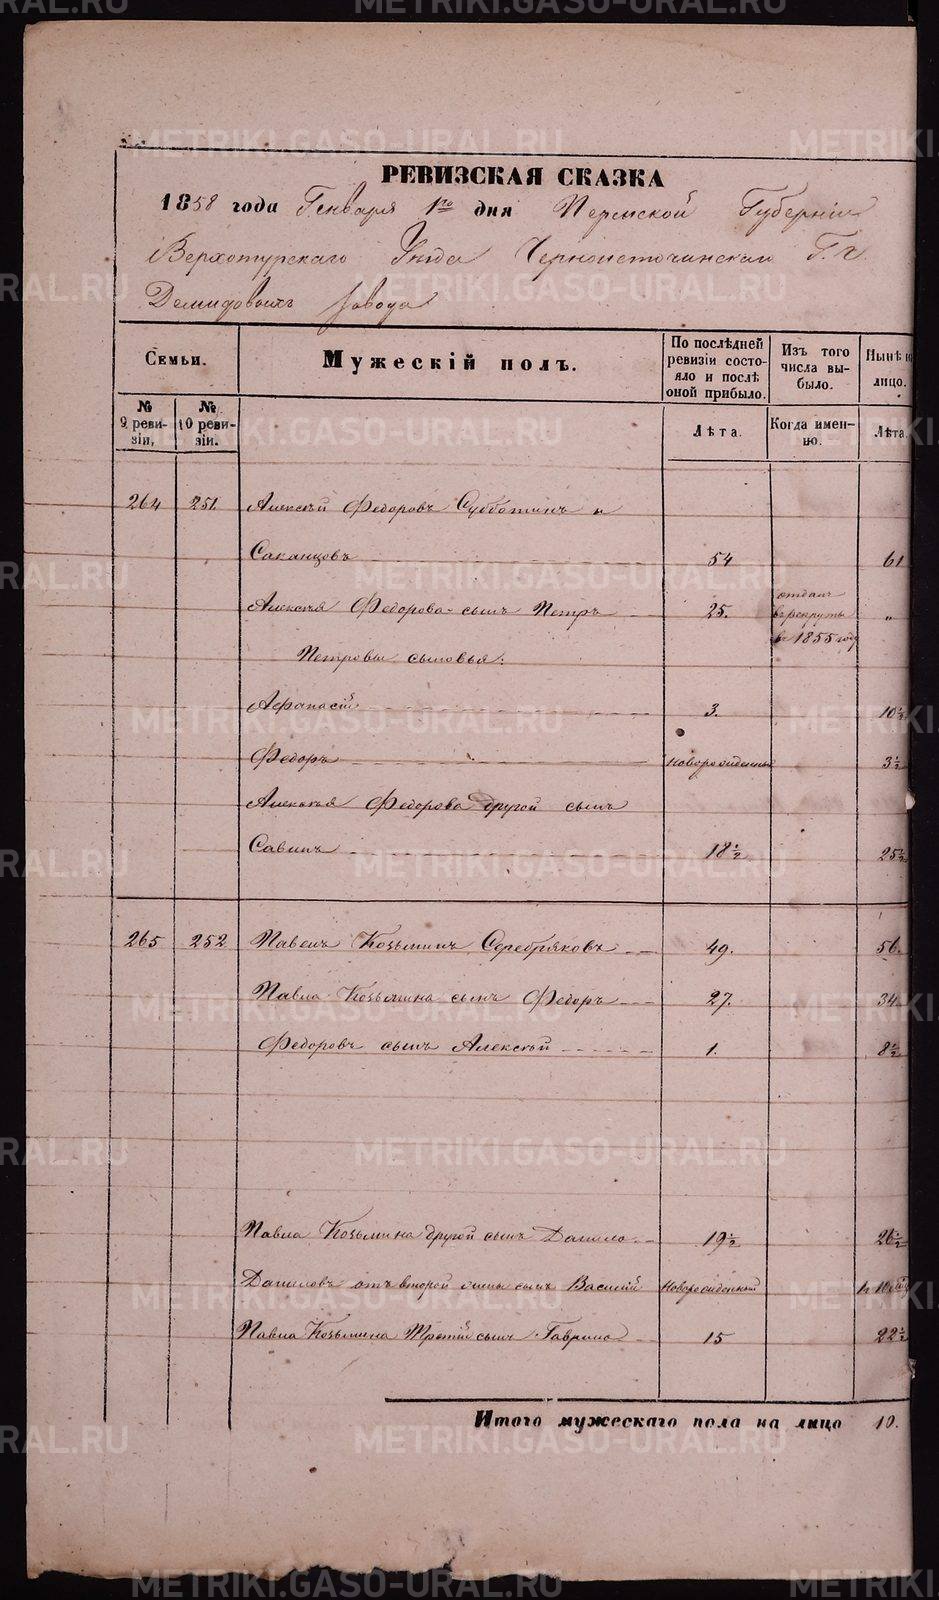 РЕВИЗСКАЯ СКАЗКА
1858 года Генваря 1го дня Пермской Губернии
Верхотурскаго Уезда Черноисточинскаго Г.г.
Демидовыхъ завода
Семьи.
Мужескій полъ.
По послѣдней ревизіи состояло и послѣ оной прибыло.
Изъ того числа выбыло.
Нынѣ на лицо.
№ 9 ревизіи,
№ 10 ревизіи.
Лѣта.
Когда именно.
Лѣта.
264 251. Алексѣй Федоровъ Субботинъ и
Саканцовъ 54 61
Алексѣя Федорова сынъ Петръ 25. отданъ в рекруты в 1855 году „
Петровы сыновья:
Афанасій 3. 10½
Федоръ новорожденный 3½
Алексѣя Федорова другой сынъ
Савинъ 18½ 25½
265 252 Павелъ Козьминъ Серебряковъ 49. 56.
Павла Козьмина сынъ Федоръ 27. 34
Федоровъ сынъ Алексѣй 1. 8½
Павла Козьмина другой сынъ Данило 19½ 26½
Даниловъ отъ второй жены сынъ Василій Новорожденный
Павла Козьмина Третій сынъ Гаврило 15 22½
Итого мужескаго пола на лицо 10.
METRIKI.GASO-URAL.RU